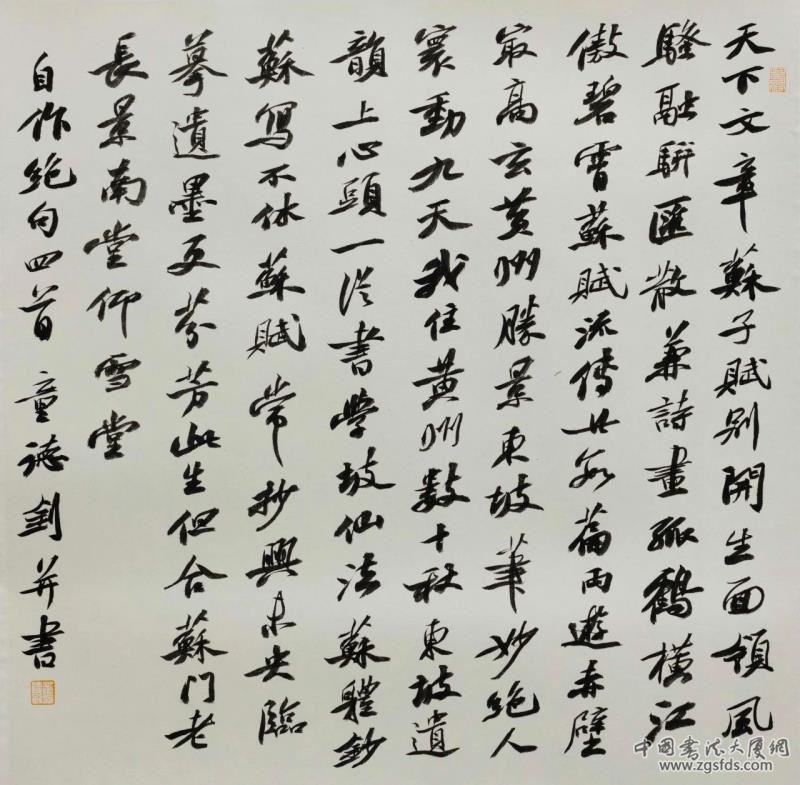 天下文章蘇子賦别開生面領風
騷融駢匯散兼詩畫孤鶴橫江
傲碧霄蘇賦流傳廿餘篇兩遊赤壁
最高玄黄州勝景東坡筆妙絶人
寰動九天我住黄州數十秋東坡遺
韻上心頭一從書學坡仙法蘇體鈔
蘇寫不休蘇賦常抄興未央臨
摹遺墨更芬芳此生但合蘇門老
長景南堂仰雪堂
自作絶句四首童德釗并書
中國書法大厦網
www.zgsfds.com